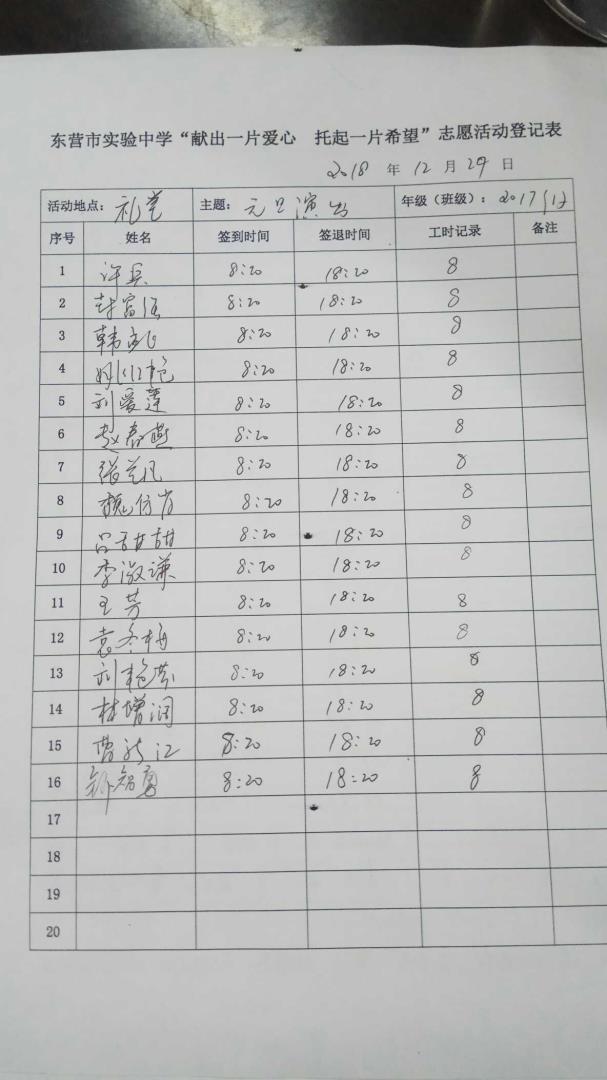 东营市实验中学“献出一片爱心 托起一片希望”志愿活动登记表
2018 年 12 月 29 日
活动地点: 礼堂 主题: 元旦演出 年级(班级): 2017
序号 姓名 签到时间 签退时间 工时记录 备注
1 许兵 8:20 18:20 8
2 8:20 18:20 8
3 8:20 18:20 8
4 8:20 18:20 8
5 刘爱莲 8:20 18:20 8
6 赵春燕 8:20 18:20 8
7 8:20 18:20 8
8 8:20 18:20 8
9 吕甜甜 8:20 18:20 8
10 李淑谦 8:20 18:20 8
11 王芳 8:20 18:20 8
12 袁冬梅 8:20 18:20 8
13 刘艳芬 8:20 18:20 8
14 林增润 8:20 18:20 8
15 曹 江 8:20 18:20 8
16 8:20 18:20 8
17
18
19
20